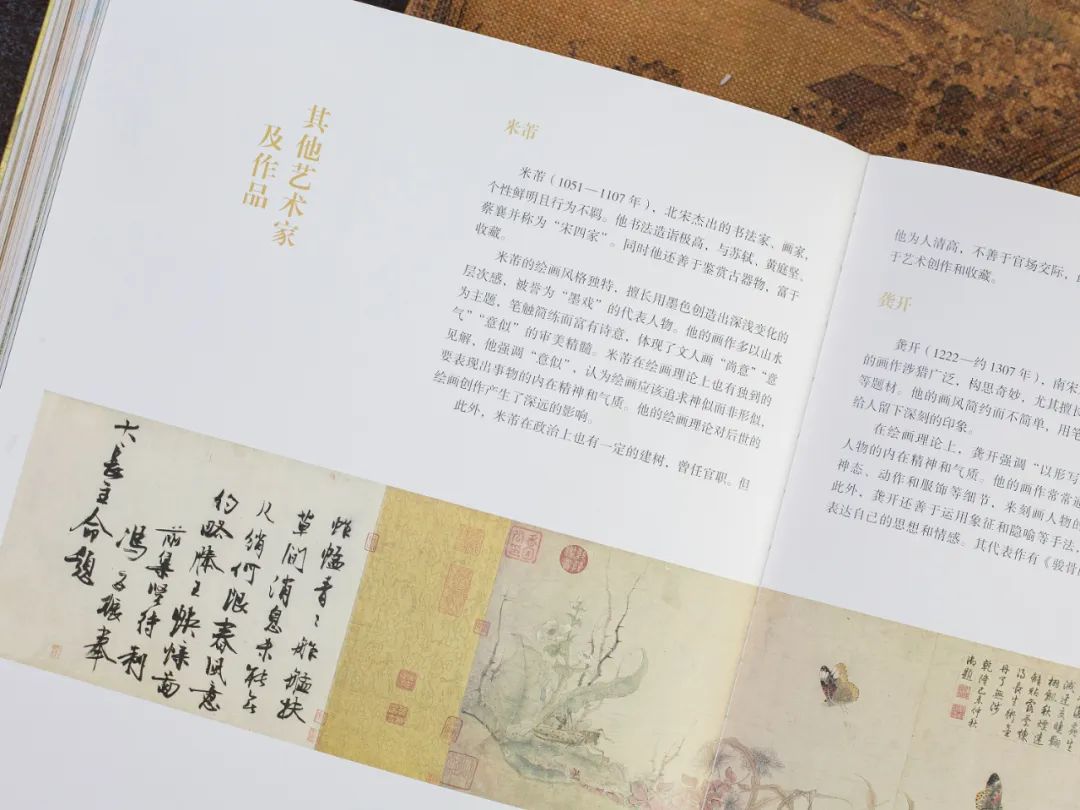 其他艺术家
及作品
米芾
米芾（1051—1107 年），北宋杰出的书法家、画家，
个性鲜明且行为不羁。他书法造诣极高，与苏轼，黄庭坚、
蔡襄并称为“宋四家”。同时他还善于鉴赏古器物，富于
收藏。
米芾的绘画风格独特，擅长用墨色创造出深浅变化的
层次感，被誉为“墨戏”的代表人物。他的画作多以山水
为主题，笔触简练而富有诗意，体现了文人画“尚意”“意
气”“意似”的审美精髓。米芾在绘画理论上也有独到的
见解，他强调“意似”，认为绘画应该追求神似而非形似，
要表现出事物的内在精神和气质。他的绘画理论对后世的
绘画创作产生了深远的影响。
此外，米芾在政治上也有一定的建树，曾任官职。但
他为人清高，不善于官场交际，
于艺术创作和收藏。
龚开
龚开（1222—约 1307 年），南宋
的画作涉猎广泛，构思奇妙，尤其擅长
等题材。他的画风简约而不简单，用笔
给人留下深刻的印象。
在绘画理论上，龚开强调“以形写
人物的内在精神和气质。他的画作常常通
神态、动作和服饰等细节，来刻画人物的
此外，龚开还善于运用象征和隐喻等手法，
表达自己的思想和情感。其代表作有《骏骨
蚱蜢青〻舴艋扶
草間消息未能無
尺綃何限春風意
約略滕王蛺蝶圖
前集賢待制
馮子振奉
大長主命題
乾隆己未仲秋
御題